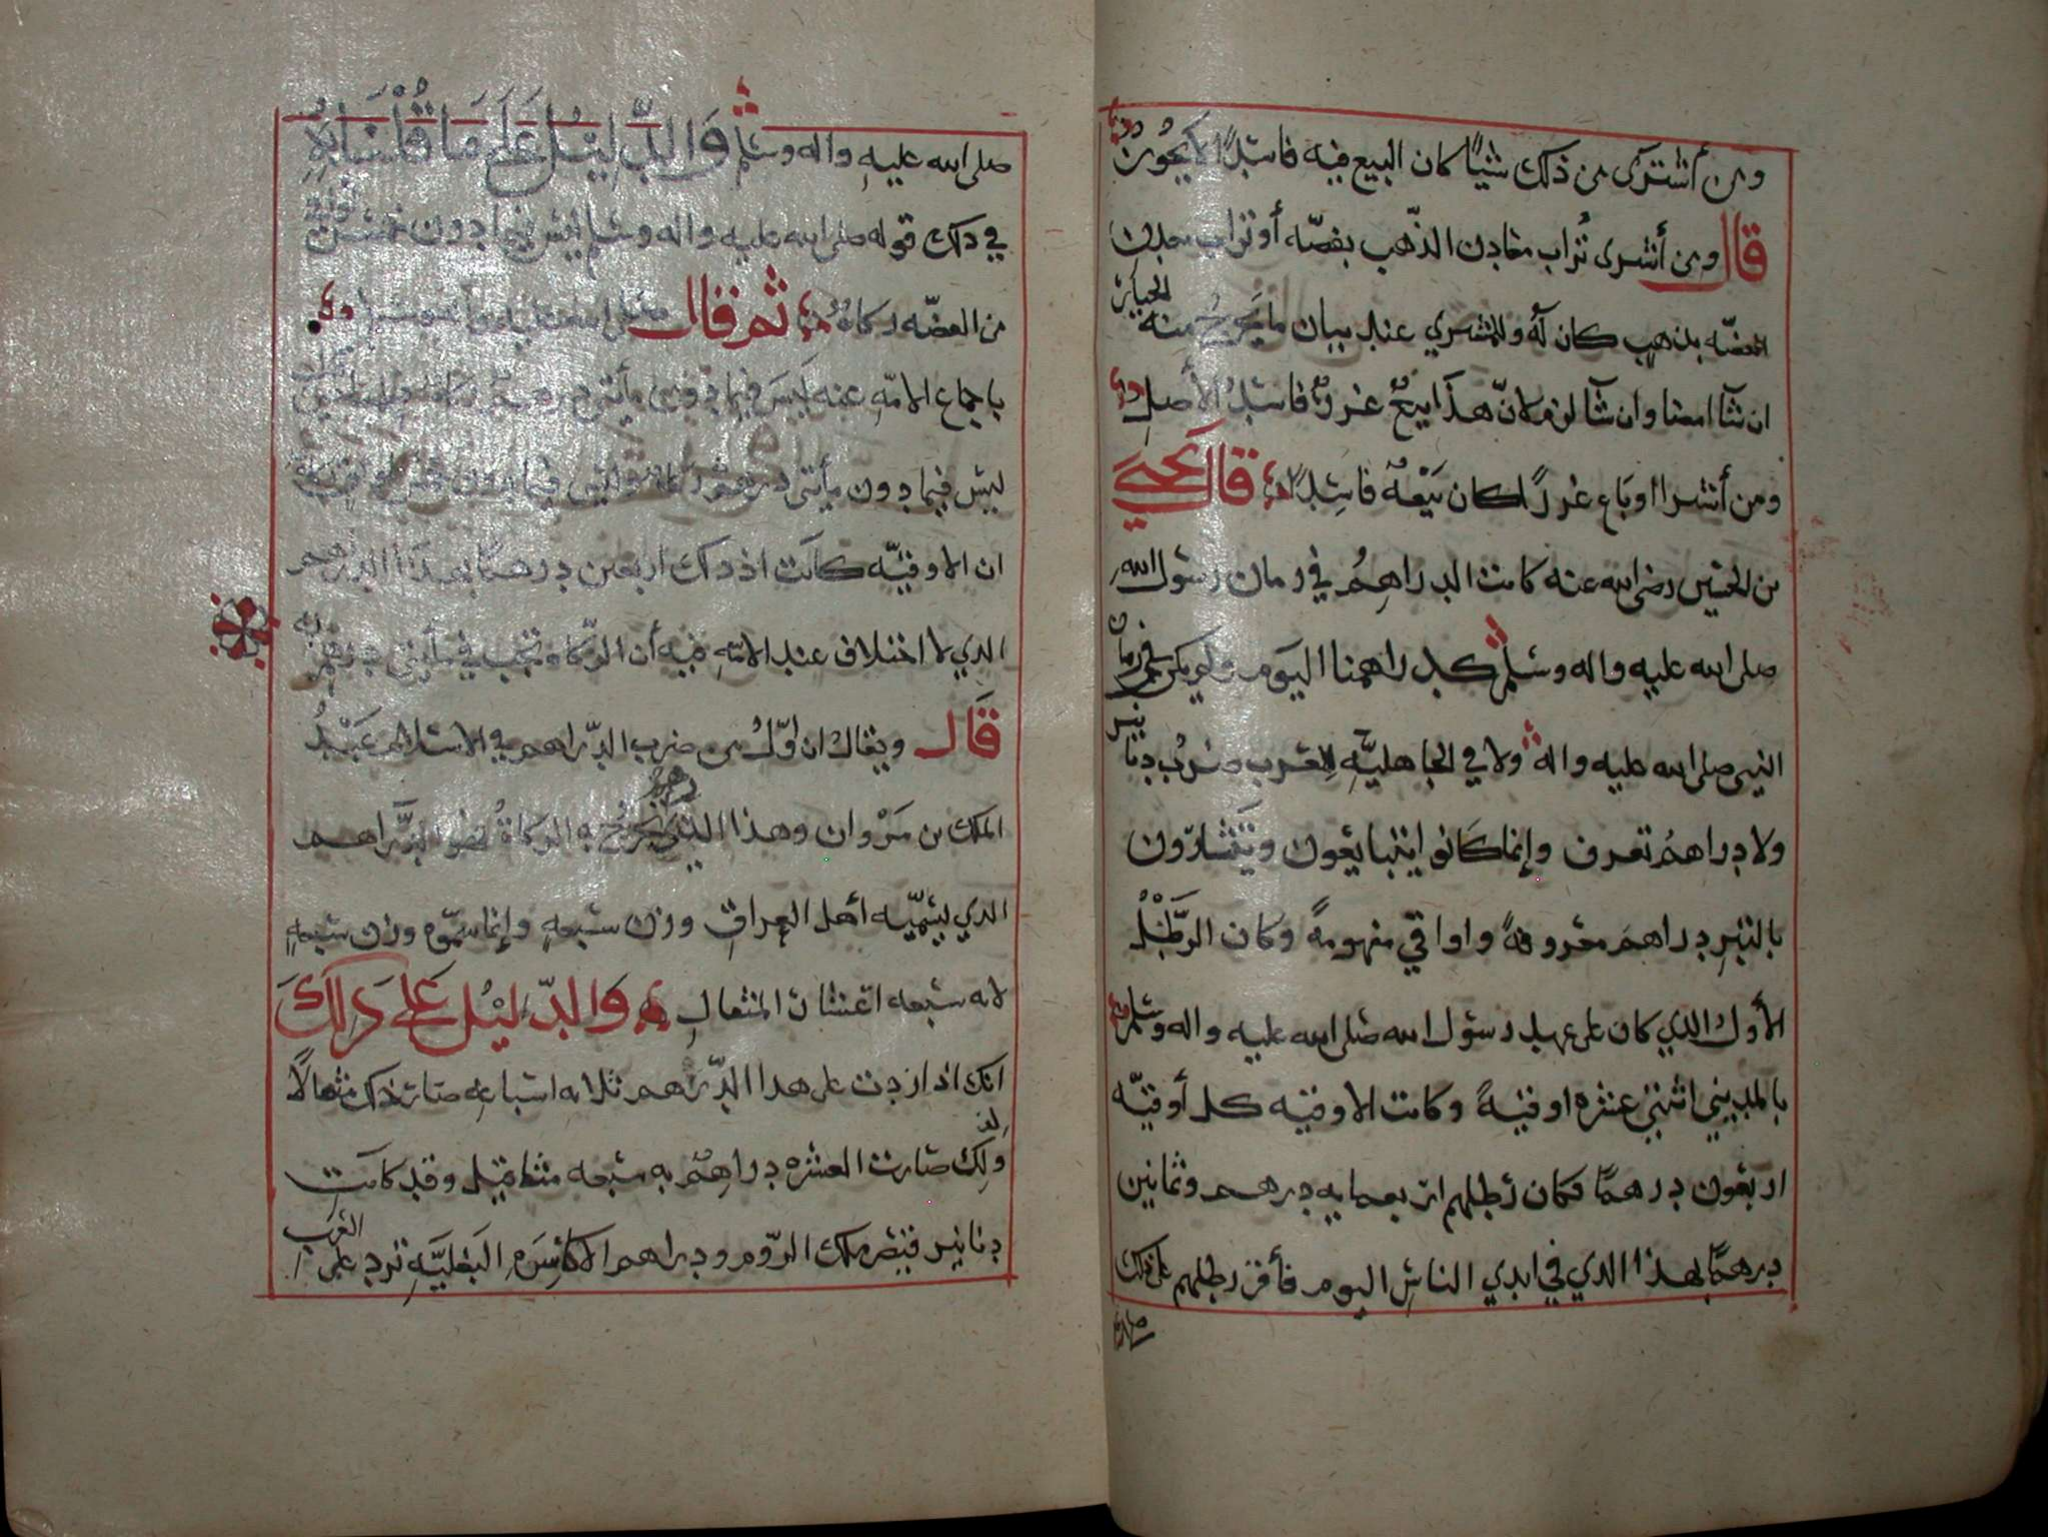 ومن أشترى من ذلك شيئاً كان البيع فيه فاسداً لا يجوز
قال ومن أشترى تراب معادن الذهب بفضه أو تراب معدن
الفضه بذهب كان له وللمشتري عند بيان ما يخرج منه الخيار
ان شآ امضا وان شآ لان هذا بيع غرر فاسد الأصل
ومن أشترا او باع غرراً كان بيعه فاسداً قال يحيى
بن الحسين رضى الله عنه كانت الدراهم في زمان رسول الله
صلى الله عليه واله وسلم كدراهمنا اليوم ولم يكن في زمان
النبي صلى الله عليه واله ولا في الجاهليه للعرب ضرب دنانير
ولا دراهم تعرف وإنما كانوا يتبايعون ويتشارون
بالتبر دراهم معروفة واواقي مفهومة وكان الرطل
الأول الذي كان على عهد رسول الله صلى الله عليه واله وسلم
بالمديني اثنتي عشره اوقية وكانت الاوقيه كل أوقيه
اربعون درهماً فكان رطلهم اربعمايه درهم وثمانين
درهماً بهذا الذي في ايدي الناس اليوم فأقر رطلهم على ذلك
صلى الله عليه واله وسلم والدليل على ما قلنا به
في ذلك قوله صلى الله عليه واله وسلم ليس فيما دون خمس
من الفضه زكاة ثم قال
باجماع الامه عنه ليس فيما دون مأتي درهم زكاة
ليس فيما دون مأتي درهم زكاة وليس فيما دون خمس
ان الاوقيه كانت اذ ذاك اربعين درهماً بهذا الدرهم
الذي لا اختلاف عند الامه فيه أن الزكاة تجب في مأتي درهم
قال ويقال ان اول من ضرب الدراهم في الاسلام عبد
الملك بن مروان وهذا الدرهم الذي يخرج به الزكاة هو الدراهم
الذي يسميه أهل العراق وزن سبعه وإنما سموه وزن سبعه
لانه سبعه اعشار المثقال والدليل على ذلك
انك اذا زدت على هذا الدرهم ثلاثه اسباعه صار ذلك مثقالاً
ولذلك صارت العشره دراهم به سبعه مثاقيل وقد كانت
دنانير قيصر ملك الروم ودراهم الاكاسره البغليه ترد على العرب